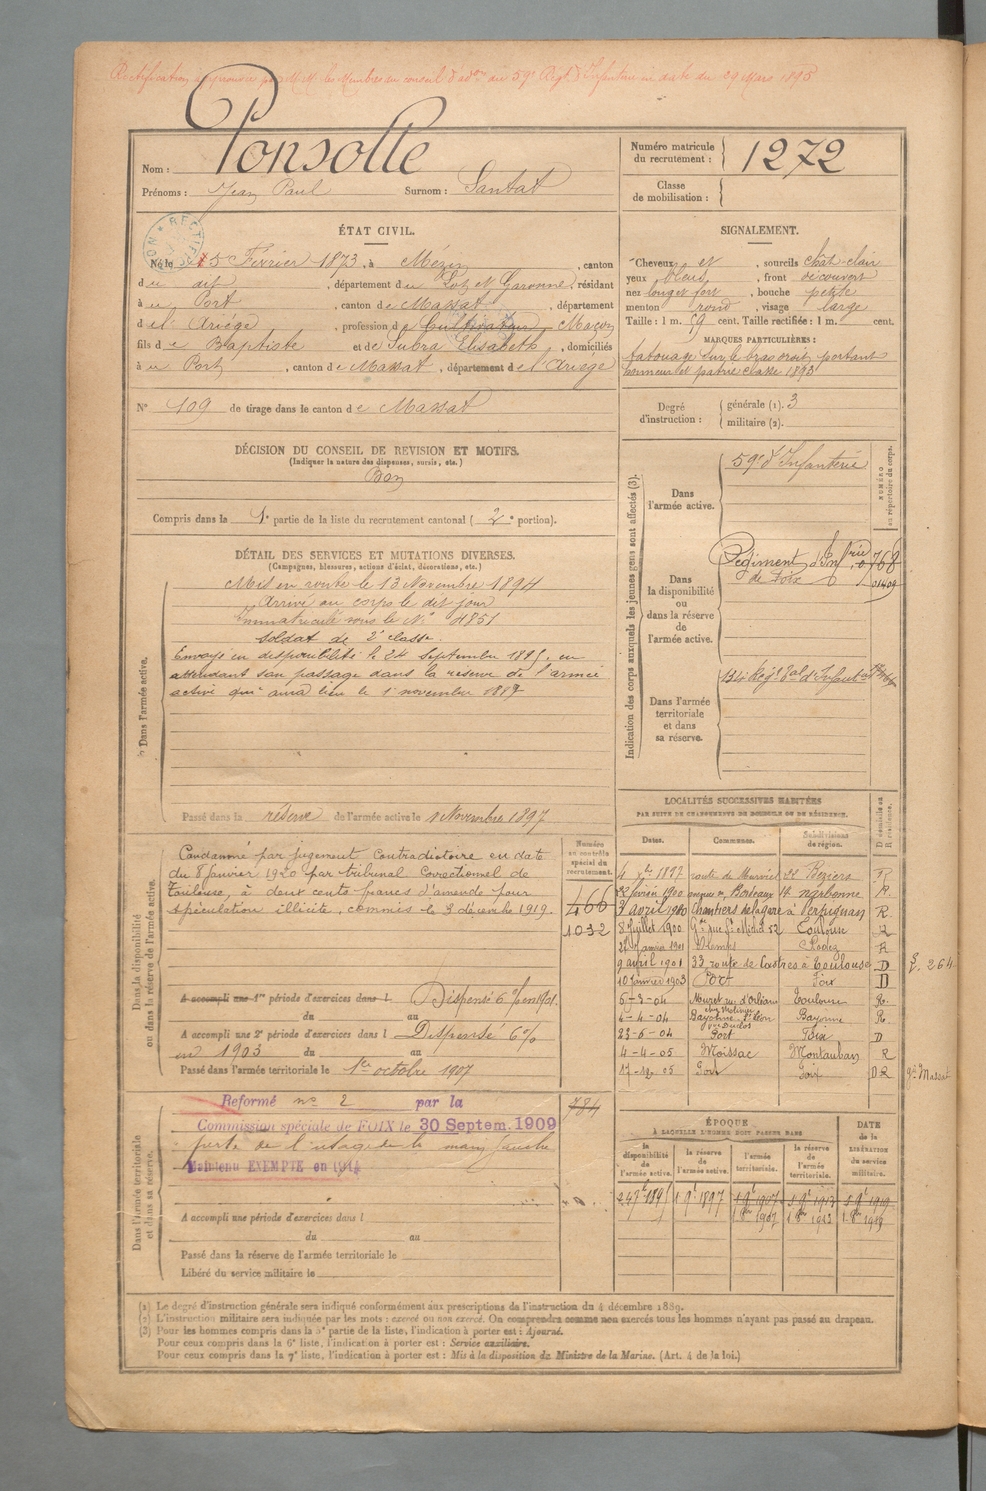 Rectification approuvée par M.M. les Membres du conseil d'adon du 59e Régt d'Infanterie en date du 29 Mars 1895
Nom : Ponsolle
Prénoms : Jean Paul Surnom : Santat
Numéro matricule du recrutement : 1272
Classe de mobilisation :
ÉTAT CIVIL.
Né le 5 Février 1873, à Mézin, canton
du dit, département du Lot et Garonne, résidant
à u Port, canton de Massat, département
de l'Ariège, profession de Cultivateur Maçon
fils de Baptiste et de Subra Elisabeth, domiciliés
à u Port, canton de Massat, département de l'Ariège
N° 109 de tirage dans le canton de Massat
SIGNALEMENT.
Cheveux et, sourcils chât-clair
yeux bleus, front découvert
nez long et fort, bouche petite
menton rond, visage large
Taille : 1 m. 59 cent. Taille rectifiée : 1 m. cent.
MARQUES PARTICULIÈRES :
tatouage sur le bras droit portant
honneur et patrie classe 1893
Degré d'instruction : générale (1). 3
militaire (2).
DÉCISION DU CONSEIL DE REVISION ET MOTIFS.
(Indiquer la nature des dispenses, sursis, etc.)
Bon
Compris dans la 1e partie de la liste du recrutement cantonal (2e portion).
DÉTAIL DES SERVICES ET MUTATIONS DIVERSES.
(Campagnes, blessures, actions d'éclat, décorations, etc.)
Dans l'armée active.
Mis en route le 13 Novembre 1894
Arrivé au corps le dit jour
Immatriculé sous le N° 4851
Soldat de 2e classe.
Envoyé en disponibilité le 24 septembre 1895. en
attendant son passage dans la réserve de l'armée
active qui aura lieu le 1er novembre 1897
Passé dans la réserve de l'armée active le 1 Novembre 1897
Indication des corps auxquels les jeunes gens sont affectés (3).
NUMÉRO au répertoire du corps.
Dans l'armée active.
59e d'Infanterie
Dans la disponibilité ou dans la réserve de l'armée active.
Régiment d'Infrie
de Foix
0768
01409
Dans l'armée territoriale et dans sa réserve.
134e Régt Tal d'Infanterie
Dans la disponibilité ou dans la réserve de l'armée active.
Numéro au contrôle spécial du recrutement.
Condamné par jugement contradictoire en date
du 8 janvier 1920 par tribunal Correctionnel de
Toulouse, à deux cents francs d'amende pour
spéculation illicite, commise le 3 décembre 1919.
466
1032
A accompli une 1re période d'exercices dans l Dispensé 6% en 1901.
du au
A accompli une 2e période d'exercices dans l Dispensé 6%
en 1903 du au
Passé dans l'armée territoriale le 1er octobre 1907
LOCALITÉS SUCCESSIVES HABITÉES
PAR SUITE DE CHANGEMENTS DE DOMICILE OU DE RÉSIDENCE.
Dates. Communes. Subdivisions de région. D domicile ou R résidence.
4 Xbre 1897 route de Murviel 22 Béziers R
22 février 1900 Bordeaux 14 Narbonne R
3 avril 1900 Chantiers de la gare à Perpignan R
8 Juillet 1900 Gde rue St Michel 52 Toulouse R
Janvier 1901 Rodez R
9 avril 1901 33, route de Castres à Toulouse D
10 Janvier 1903 Port Foix D
5-3-04 Muret rue d'Orléans Toulouse R.
4-4-04 Bayonne St Léon Bayonne R.
23-6-04 Port Foix D
4-4-05 Moissac Montauban R
17-12-05 Port Foix DR
f. 264
gie Massat
Dans l'armée territoriale et dans sa réserve.
Réformé n° 2 par la
Commission spéciale de FOIX le 30 Septem. 1909
perte de l'usage de la main gauche
Maintenu EXEMPTÉ en 1914
784
A accompli une période d'exercices dans l
du au
Passé dans la réserve de l'armée territoriale le
Libéré du service militaire le
ÉPOQUE
À LAQUELLE L'HOMME DOIT PASSER DANS
la disponibilité de l'armée active.
la réserve de l'armée active.
l'armée territoriale.
la réserve de l'armée territoriale.
DATE de la LIBÉRATION du service militaire.
24 7bre 1895 1 9bre 1897 1 9bre 1907 1 9bre 1913 1 9bre 1919
1 8bre 1907 1 8bre 1913 1 8bre 1919
(1) Le degré d'instruction générale sera indiqué conformément aux prescriptions de l'instruction du 4 décembre 1889.
(2) L'instruction militaire sera indiquée par les mots : exercé ou non exercé. On comprendra comme non exercés tous les hommes n'ayant pas passé au drapeau.
(3) Pour les hommes compris dans la 5e partie de la liste, l'indication à porter est : Ajourné.
Pour ceux compris dans la 6e liste, l'indication à porter est : Service auxiliaire.
Pour ceux compris dans la 7e liste, l'indication à porter est : Mis à la disposition du Ministre de la Marine. (Art. 4 de la loi.)